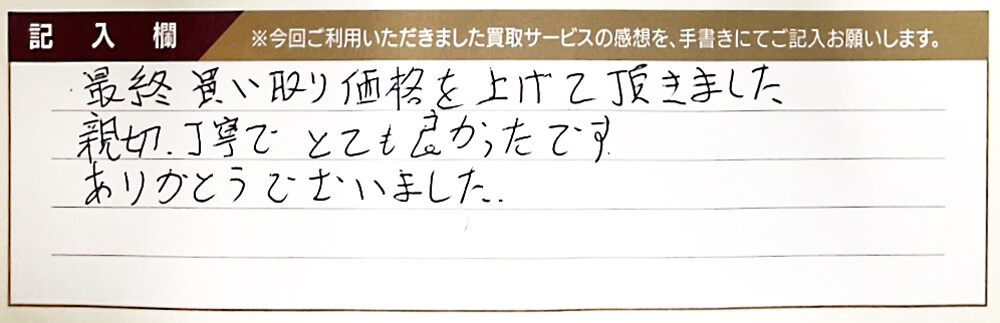 記入欄
※今回ご利用いただきました買取サービスの感想を、手書きにてご記入お願いします。
最終買い取り価格を上げて頂きました
親切、丁寧でとても良かったです
ありがとうございました.